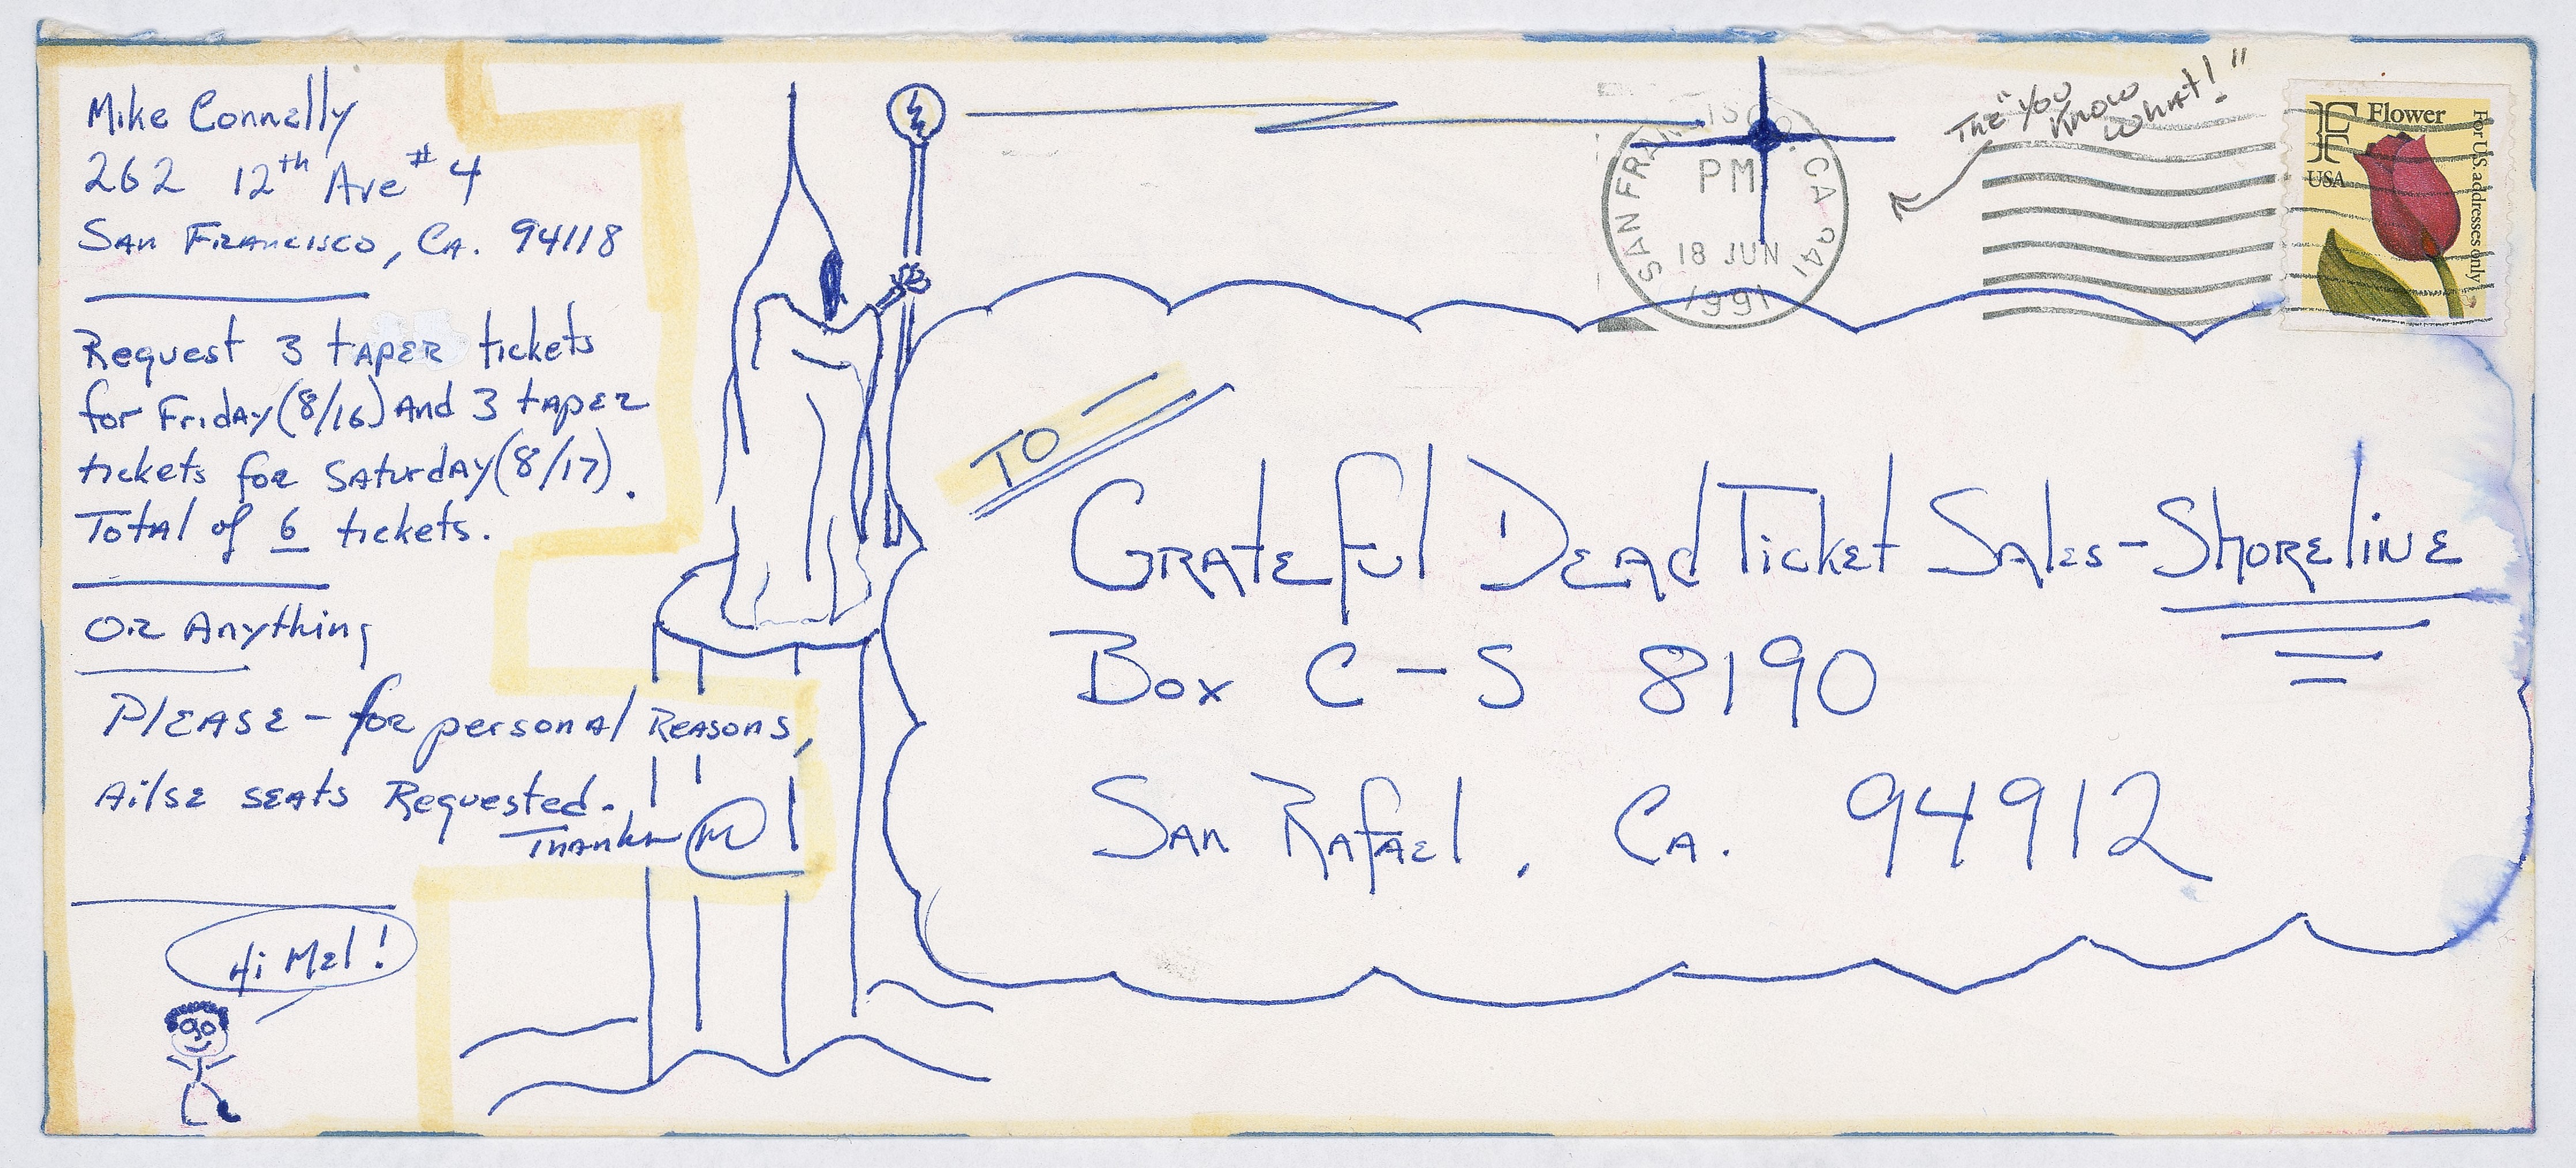 Mike Connally
262 12th Ave #4
San Francisco, Ca. 94118
Request 3 taper tickets
for Friday (8/16) And 3 taper
tickets for Saturday (8/17).
Total of 6 tickets.
Or Anything
Please - for personal Reasons,
Ailse seats Requested.
Thanks M
Hi Mel!
TO -
Grateful Dead Ticket Sales - Shoreline
Box C-S 8190
San Rafael, Ca. 94912
SAN FRANCISCO, CA 941
PM
18 JUN
1991
The "You
Know
What!"
F Flower
USA
For U.S. addresses only